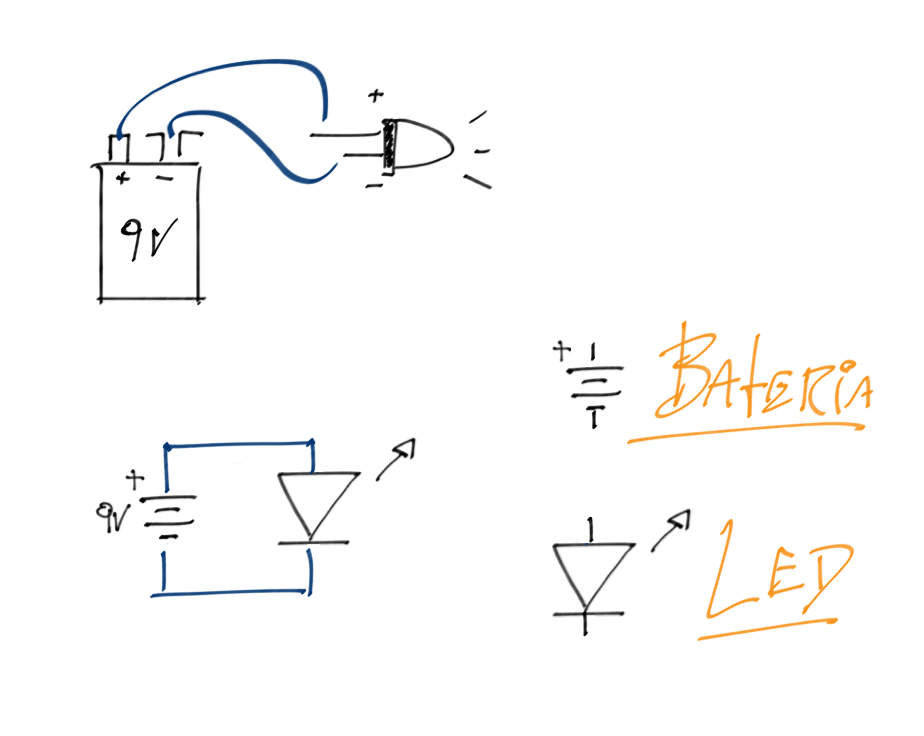 +
-
+ -
9V
+
BATERIA
+
9V
LED